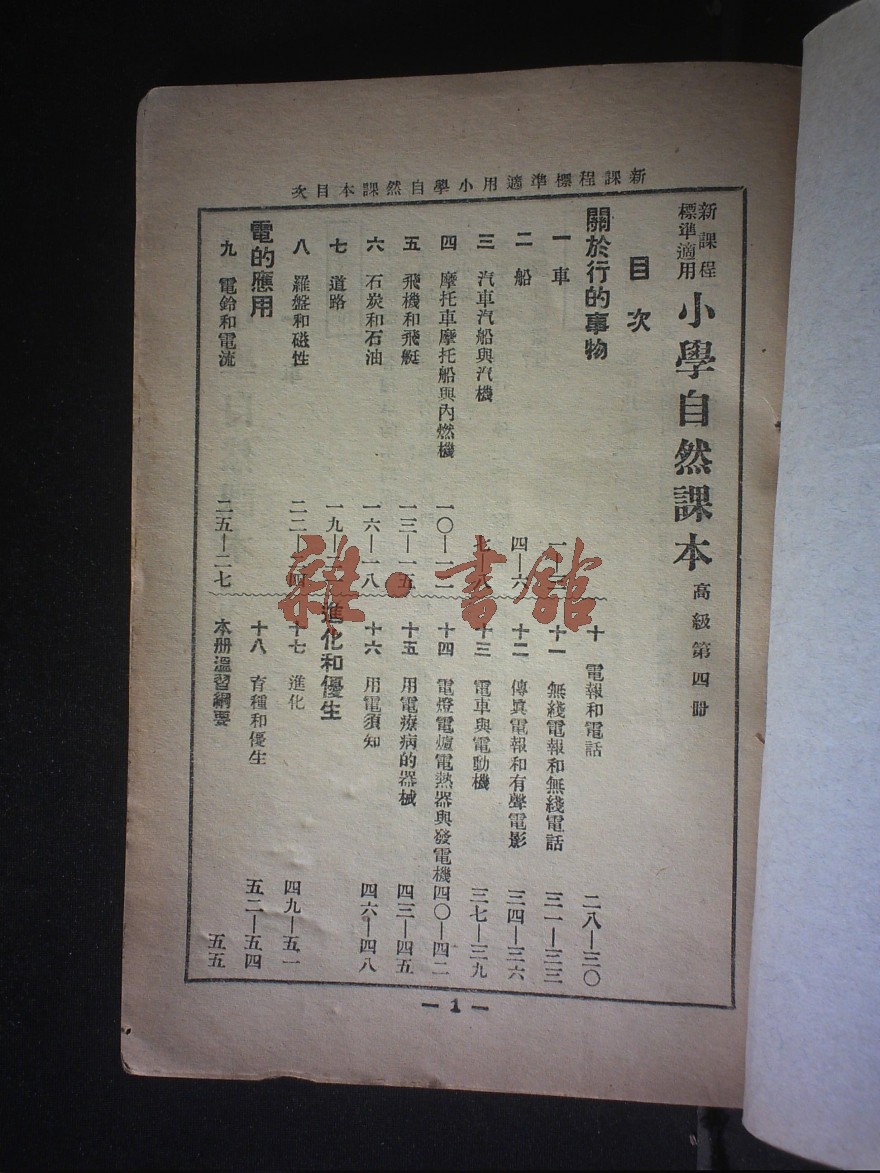 新課程標準適用小學自然課本目次
新課程
標準適用
小學自然課本 高級第四冊
目次
關於行的事物
一 車 一—三
二 船 四—六
三 汽車汽船與汽機 七—九
四 摩托車摩托船與內燃機 一〇—一二
五 飛機和飛艇 一三—一五
六 石炭和石油 一六—一八
七 道路 一九—
八 羅盤和磁性 二二—二四
電的應用
九 電鈴和電流 二五—二七
十 電報和電話 二八—三〇
十一 無綫電報和無綫電話 三一—三三
十二 傳眞電報和有聲電影 三四—三六
十三 電車與電動機 三七—三九
十四 電燈電爐電熱器與發電機 四〇—四二
十五 用電療病的器械 四三—四五
十六 用電須知 四六—四八
進化和優生
十七 進化 四九—五一
十八 育種和優生 五二—五四
本册溫習綱要 五五
— 1 —
雜·書館